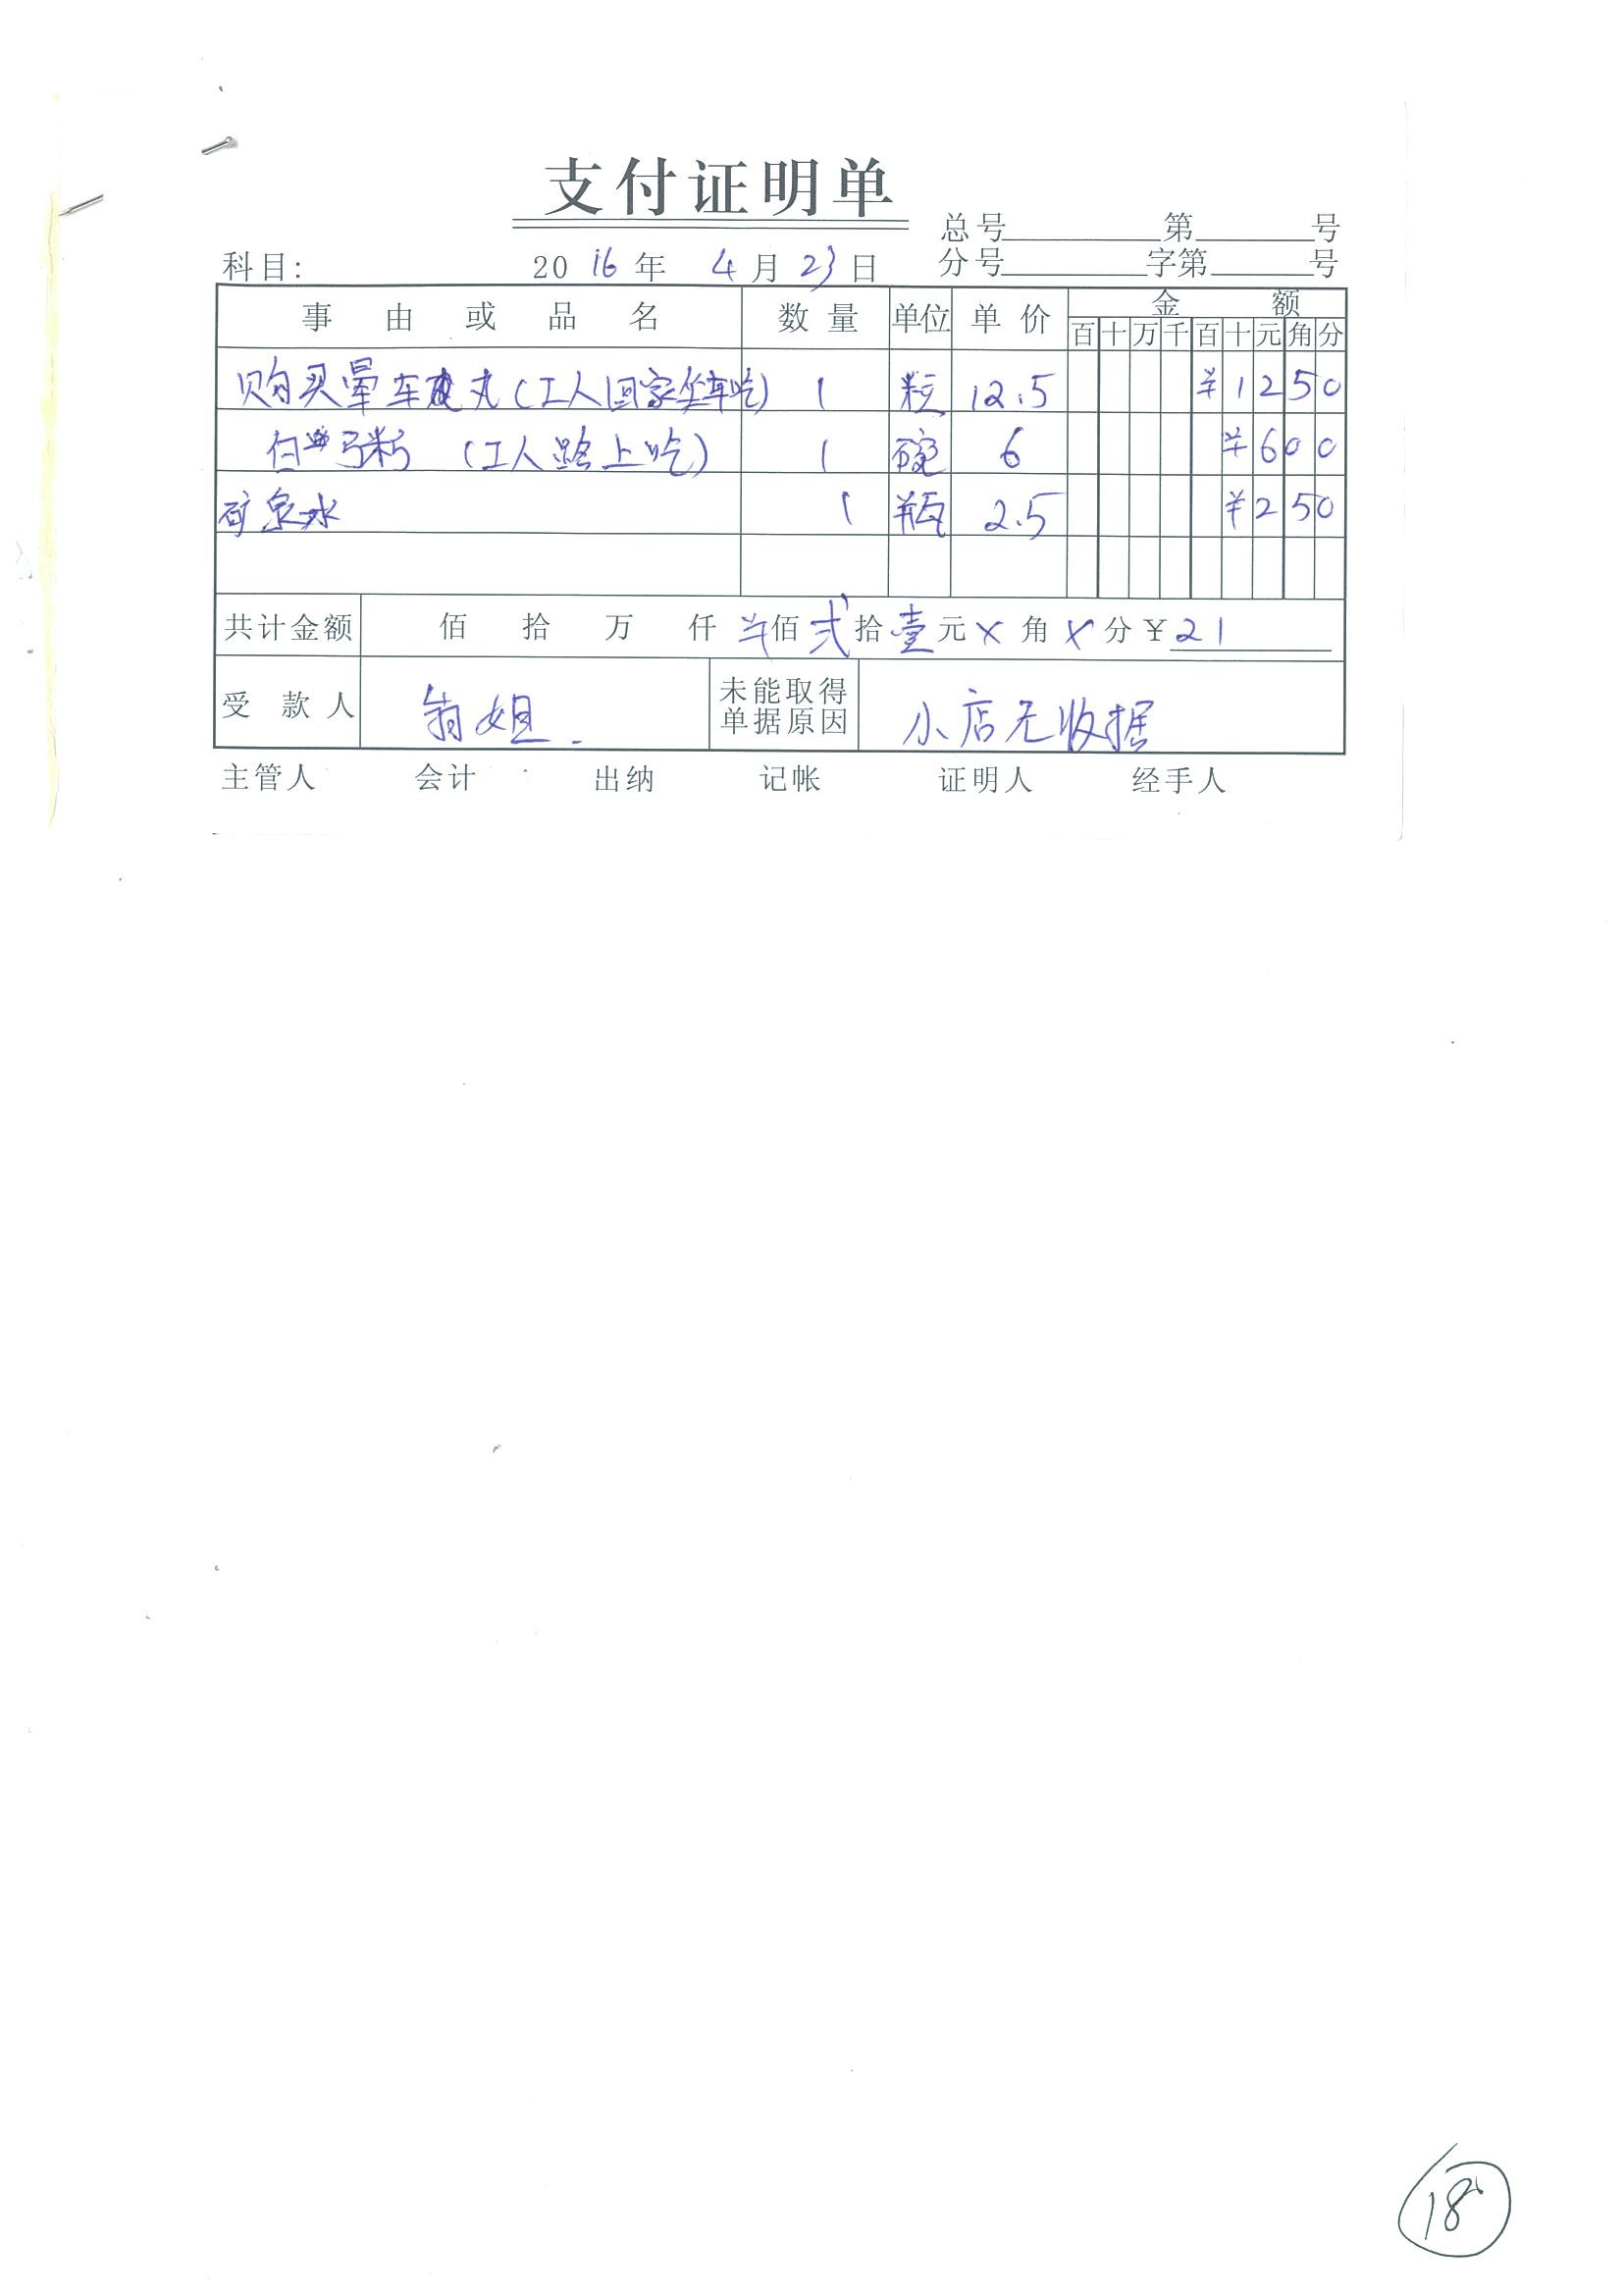 支付证明单
总号 第 号
科目: 2016年 4月23日 分号 字第 号
事由或品名 数量 单位 单价 金额
百十万千百十元角分
购买晕车丸(工人回家坐车吃) 1 粒 12.5 ¥1250
粉 (工人路上吃) 1 碗 6 ¥600
矿泉水 1 瓶 2.5 ¥250
共计金额 佰 拾 万 仟 佰 弍 拾 壹 元 × 角 × 分 ¥21
受款人 翁姐. 未能取得单据原因 小店无收据
主管人 会计 出纳 记帐 证明人 经手人
18